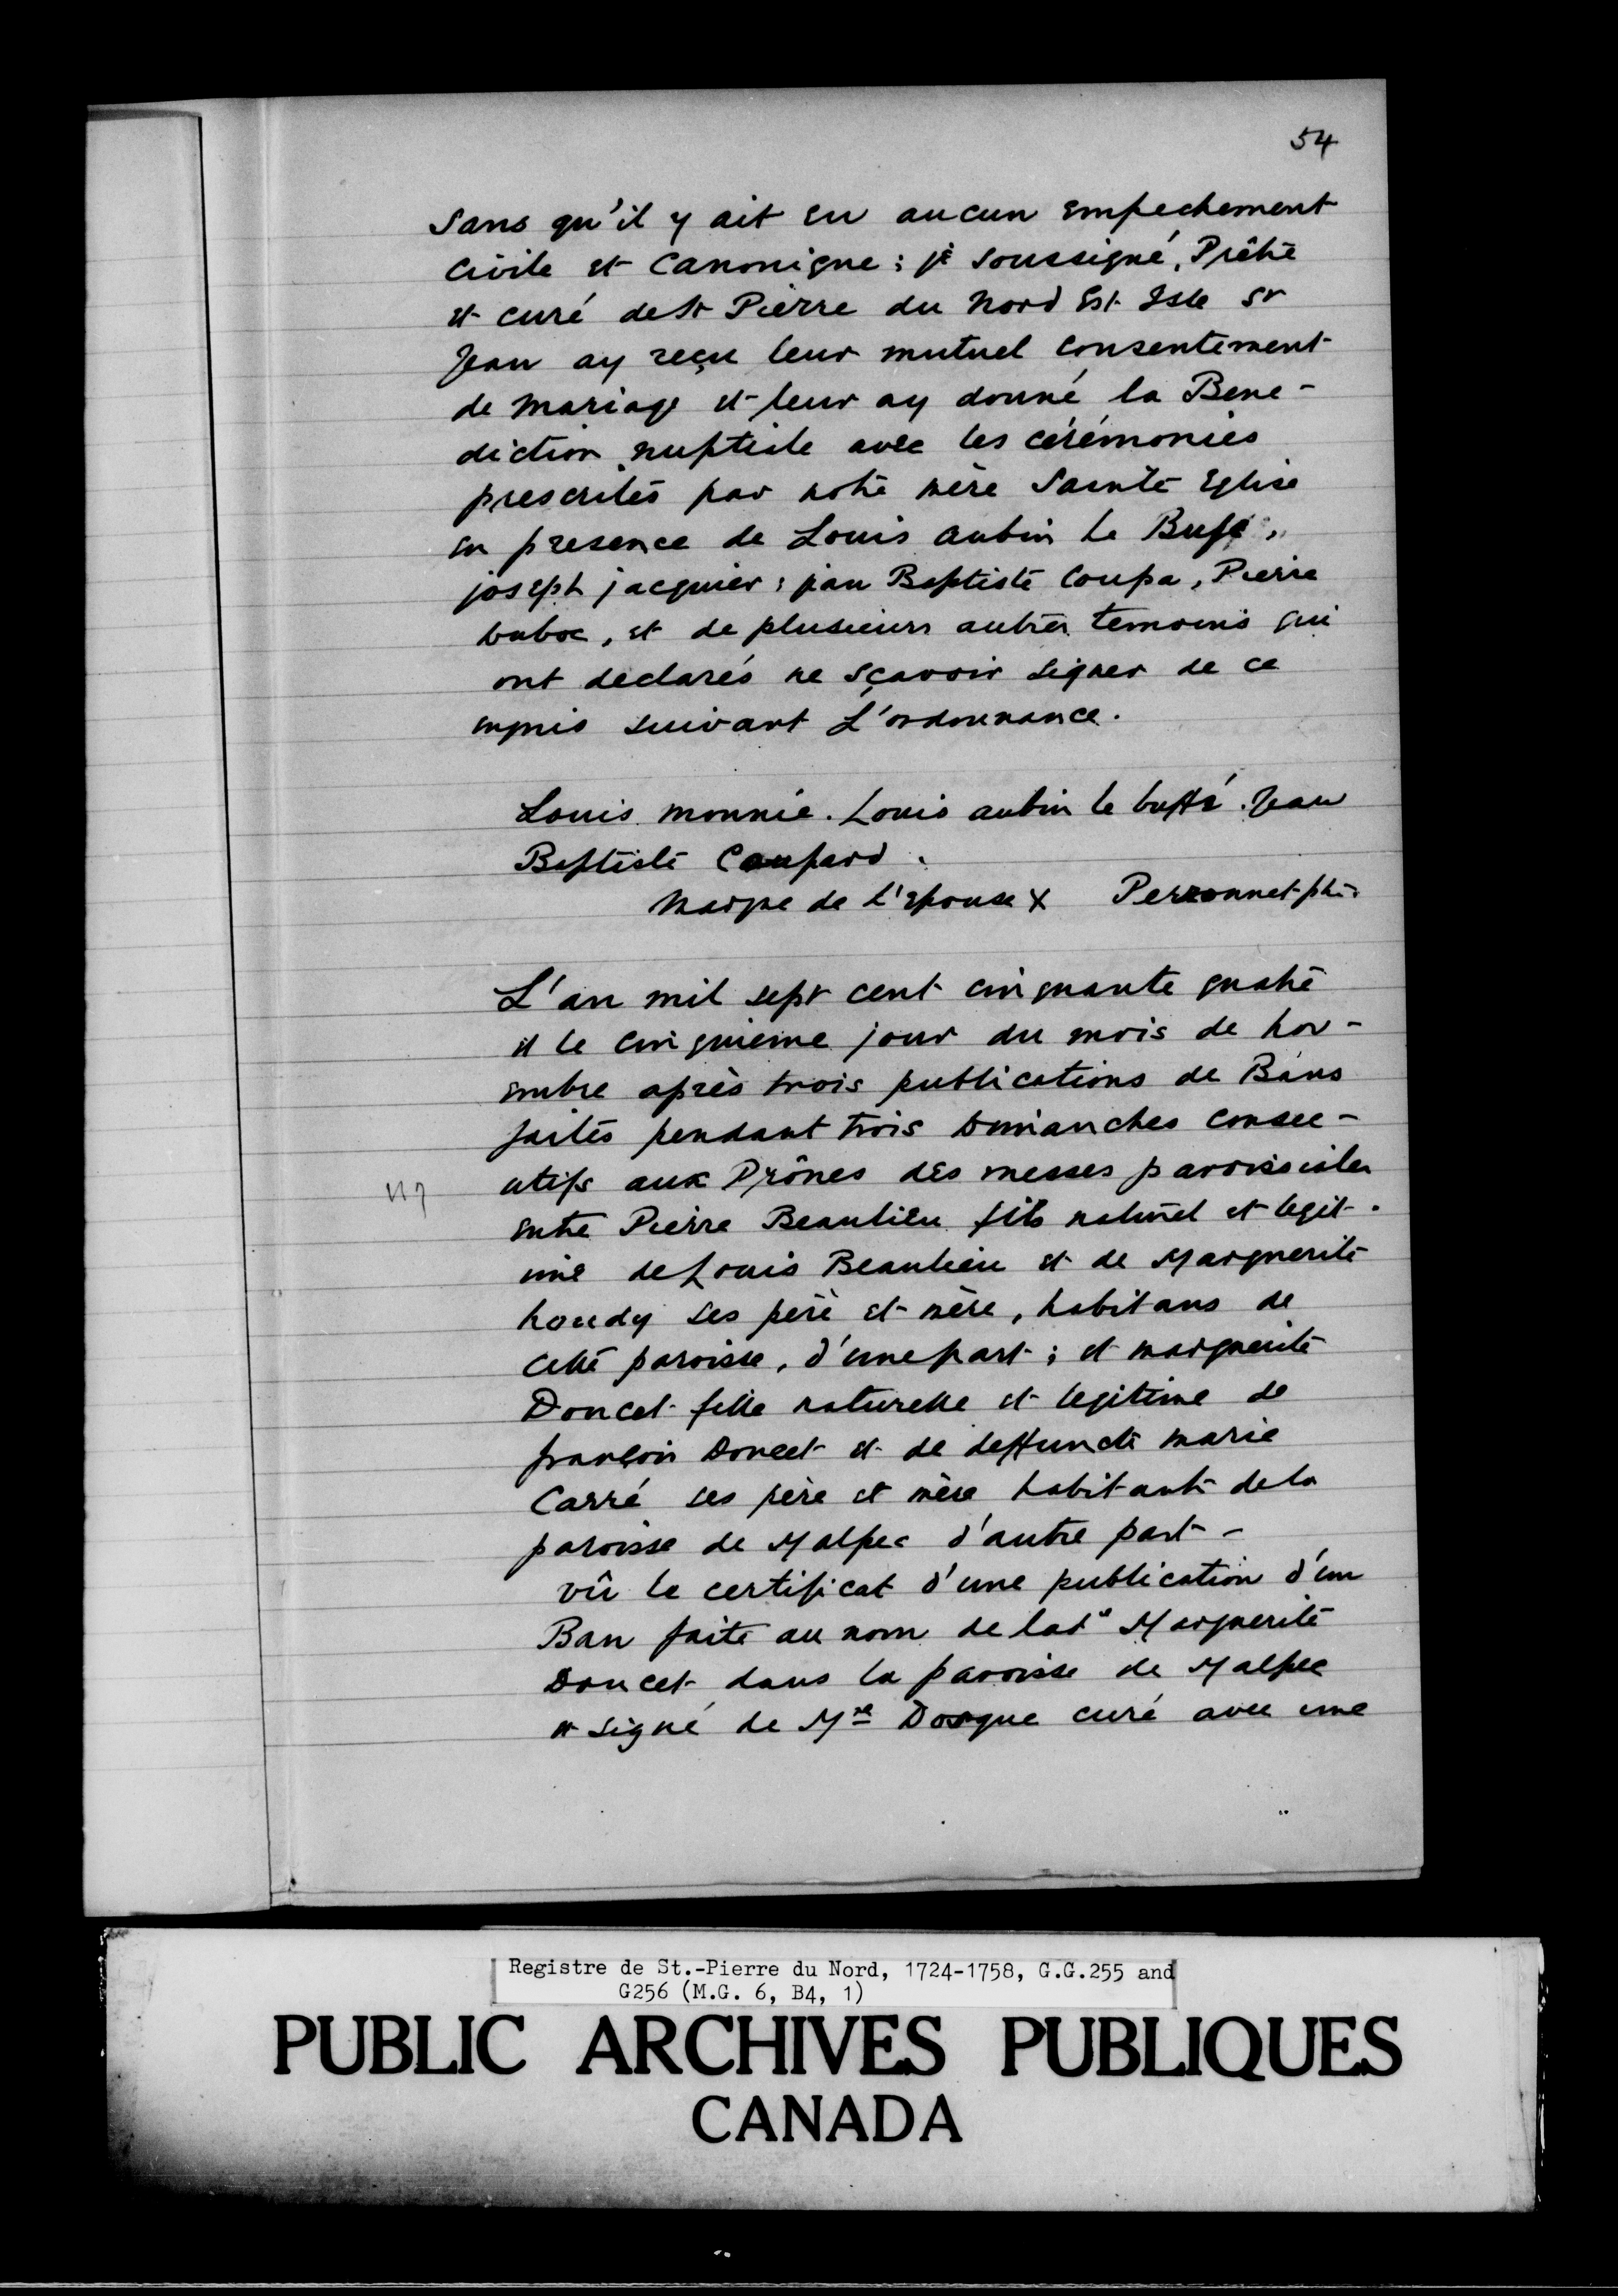 54
Sans qu'il y ait eu aucun empechement
Civile et Canonique : je soussigné, Prêtre
et curé de St Pierre du Nord Est Isle St
Jean ay reçu leur mutuel consentement
de mariage et leur ay donné la Bene-
diction nuptiale avec les cérémonies
prescrites par notre mère Sainte Eglise
en presence de Louis aubin le Bufe,
joseph jacquier ; jean Baptiste Coupa, Pierre
duboc, et de plusieurs autres temoins qui
ont declarés ne sçavoir signer de ce
enquis suivant L'ordonnance.
Louis monnié. Louis aubin le buffé. Jean
Baptiste Coupard.
Marque de l'Epouse X Perronnet ptre
L'an mil sept cent cinquante quatre
et le cinquieme jour du mois de nov-
embre après trois publications de Bans
faites pendant trois Dimanches consec-
utifs aux Prônes des messes paroissiales
117
entre Pierre Beaulieu fils naturel et legit-
ime de Louis Beaulieu et de Marguerite
houdy ses père et mère, habitans de
cette paroisse, d'une part ; et marguerite
Doucet fille naturelle et legitime de
françois Doucet et de deffuncte marie
Carré ses père et mère habitants de la
paroisse de Malpec d'autre part -
vû le certificat d'une publication d'un
Ban faite au nom de lade Marguerite
Doucet dans la paroisse de Malpec
et signé de Mre Dosque curé avec une
Registre de St.-Pierre du Nord, 1724-1758, G.G.255 and
G256 (M.G. 6, B4, 1)
PUBLIC ARCHIVES PUBLIQUES
CANADA